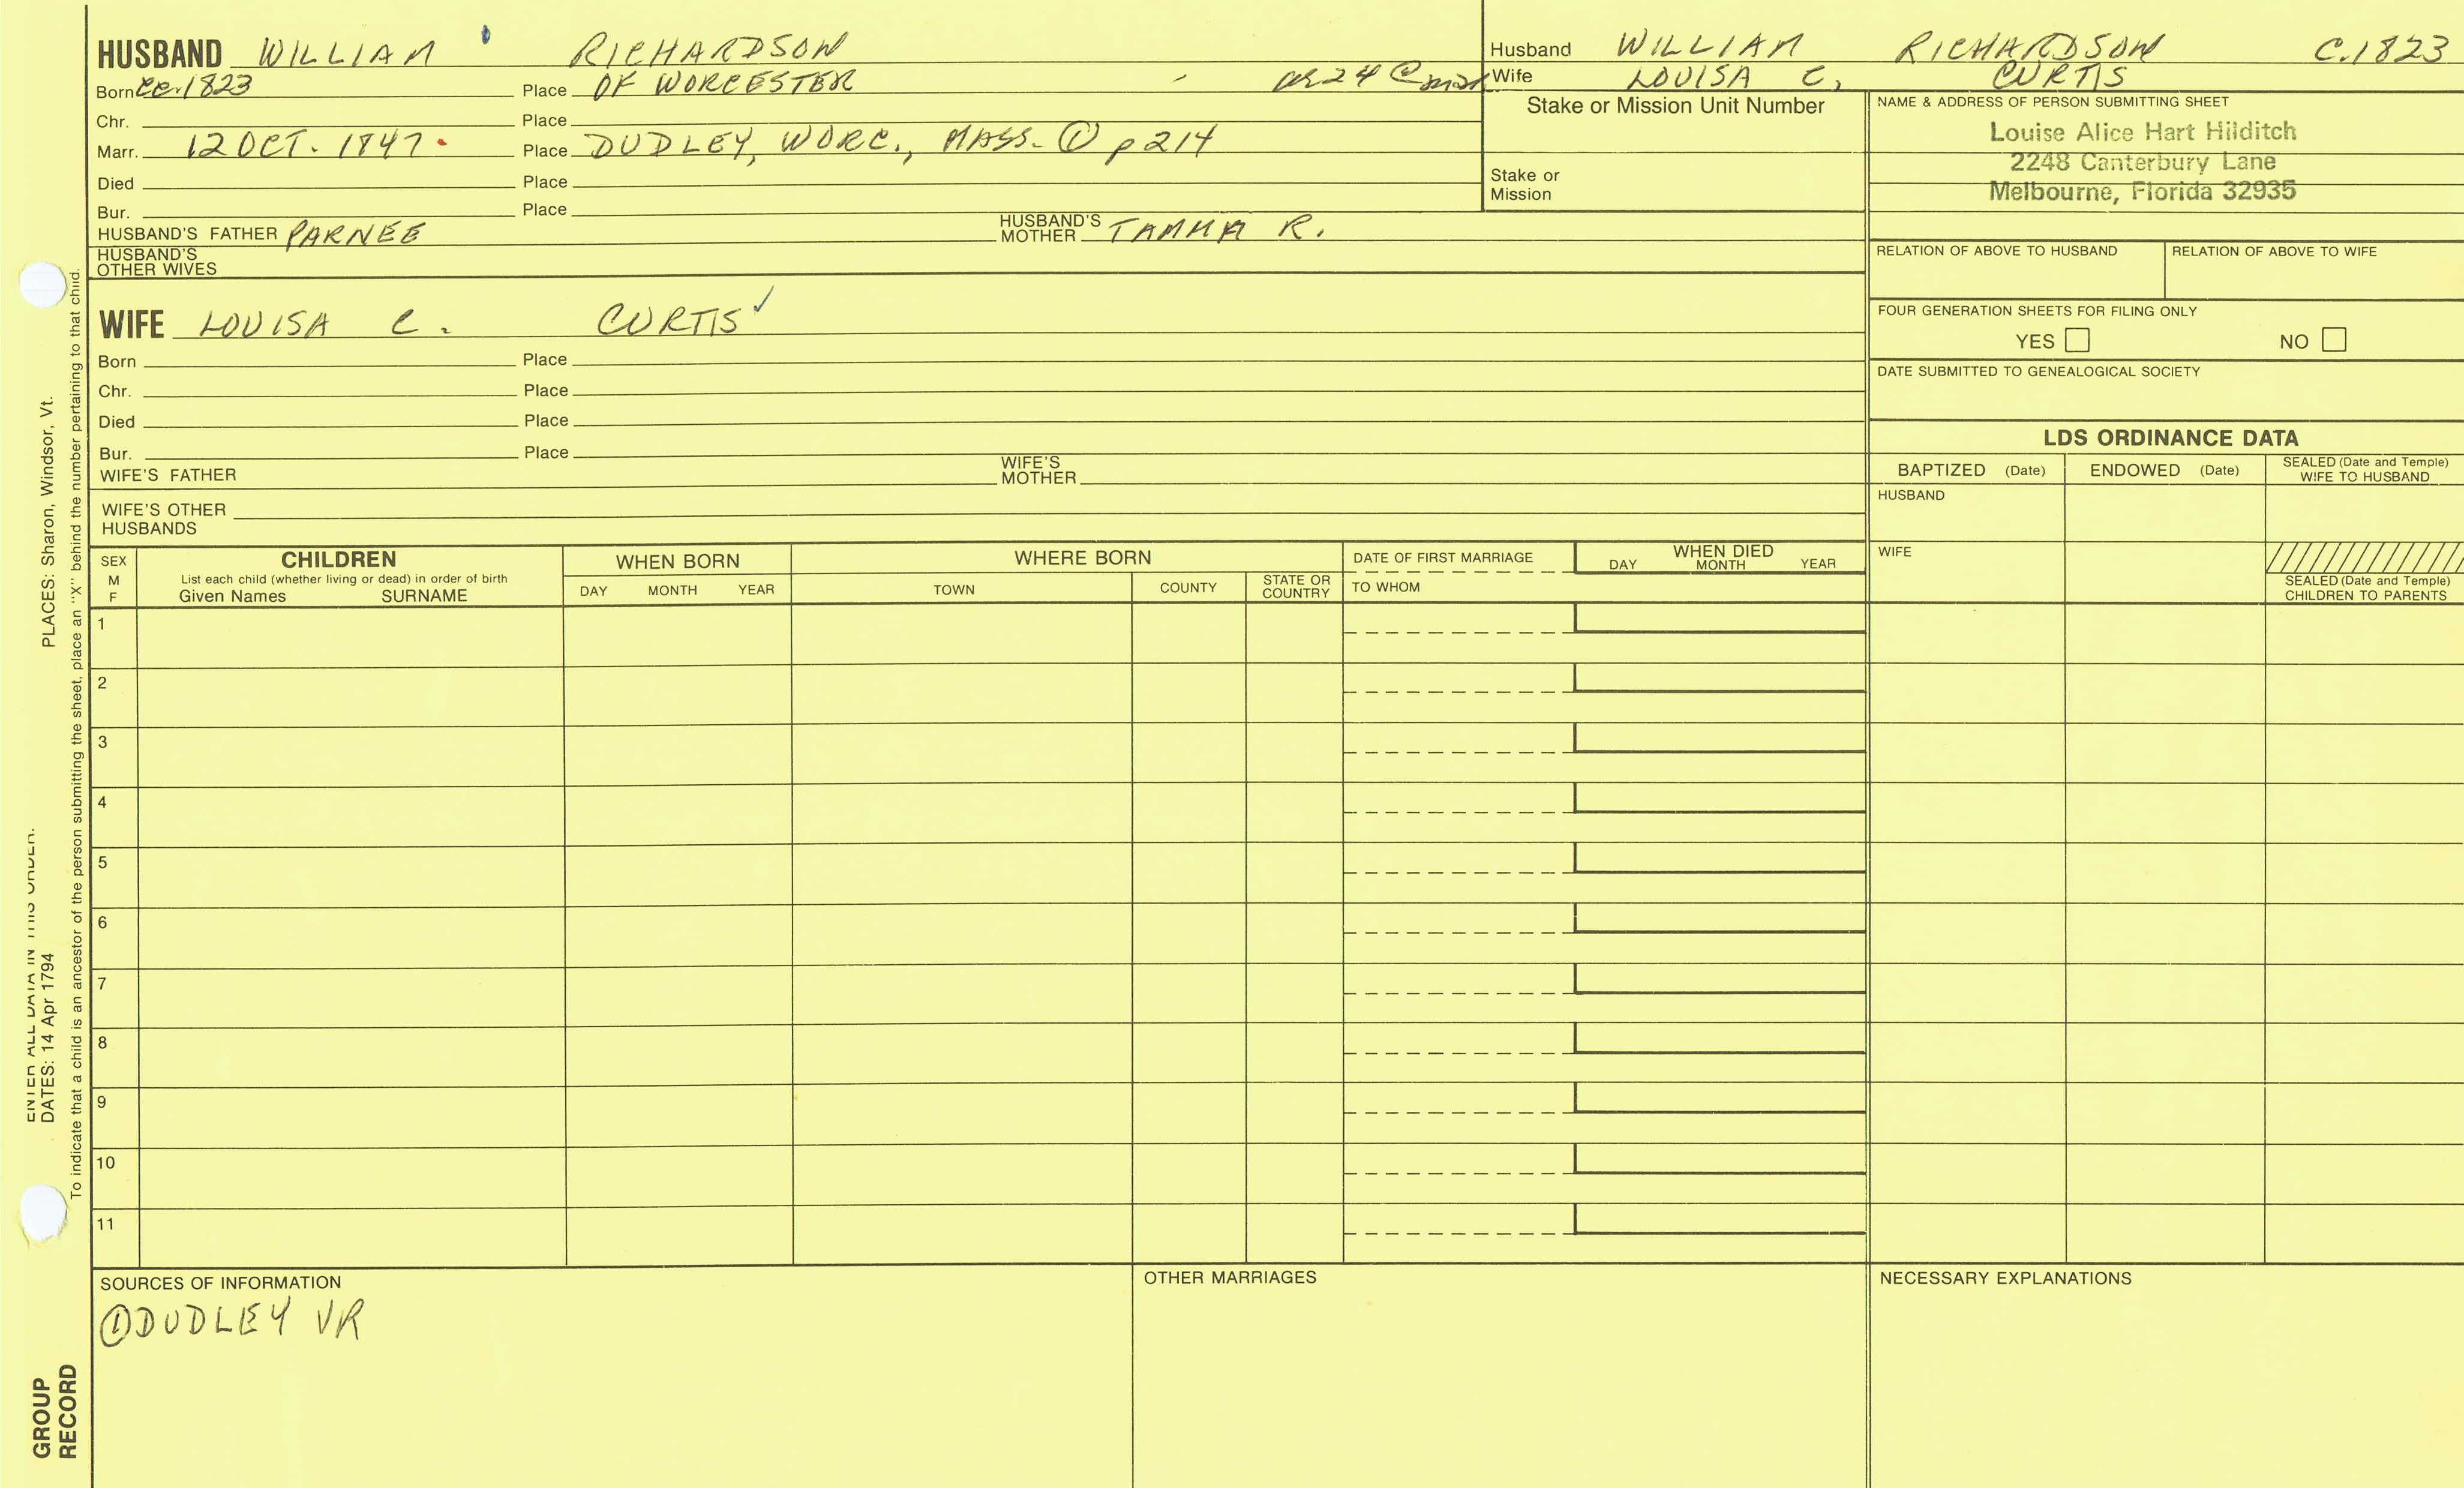 HUSBAND WILLIAM RICHARDSON
Born ca. 1823 Place OF WORCESTER as 24 @ mar
Chr. Place
Marr. 12 OCT. 1847. Place DUDLEY, WORC., MASS. ① p 214
Died Place
Bur. Place
HUSBAND'S FATHER PARNEE HUSBAND'S MOTHER TAMMA R.
HUSBAND'S OTHER WIVES
WIFE LOUISA C. CURTIS ✓
Born Place
Chr. Place
Died Place
Bur. Place
WIFE'S FATHER WIFE'S MOTHER
WIFE'S OTHER HUSBANDS
Husband WILLIAM RICHARDSON C.1823
Wife LOUISA C. CURTIS
Stake or Mission Unit Number
Stake or Mission
NAME & ADDRESS OF PERSON SUBMITTING SHEET
Louise Alice Hart Hilditch
2248 Canterbury Lane
Melbourne, Florida 32935
RELATION OF ABOVE TO HUSBAND RELATION OF ABOVE TO WIFE
FOUR GENERATION SHEETS FOR FILING ONLY
YES NO
DATE SUBMITTED TO GENEALOGICAL SOCIETY
LDS ORDINANCE DATA
BAPTIZED (Date) ENDOWED (Date) SEALED (Date and Temple) WIFE TO HUSBAND
HUSBAND
WIFE
SEALED (Date and Temple) CHILDREN TO PARENTS
SEX M F
CHILDREN
List each child (whether living or dead) in order of birth
Given Names SURNAME
WHEN BORN
DAY MONTH YEAR
WHERE BORN
TOWN COUNTY STATE OR COUNTRY
DATE OF FIRST MARRIAGE
TO WHOM
WHEN DIED
DAY MONTH YEAR
1
2
3
4
5
6
7
8
9
10
11
SOURCES OF INFORMATION
① DUDLEY VR
OTHER MARRIAGES
NECESSARY EXPLANATIONS
ENTER ALL DATA IN THIS ORDER.
DATES: 14 Apr 1794 PLACES: Sharon, Windsor, Vt.
To indicate that a child is an ancestor of the person submitting the sheet, place an "X" behind the number pertaining to that child.
GROUP
RECORD